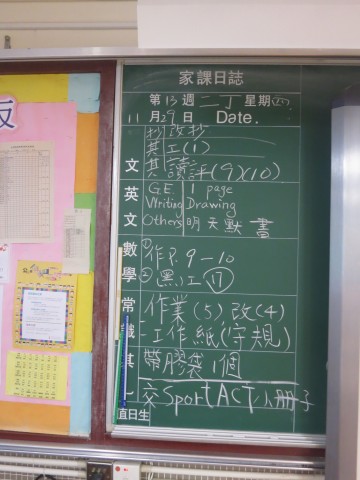 家課日誌
第13週二丁星期四
11月29日 Date.
抄改抄
其工(1)
文 其讀評(9)(10)
英 G.E. 1 page
Writing Drawing
文 Others 明天默書
數 ①作不9-10
學 ②黑工⑰
常 作業(5)改(4)
識 工作紙(守規)
其 帶膠袋1個
交Sport ACT小冊子
值日生